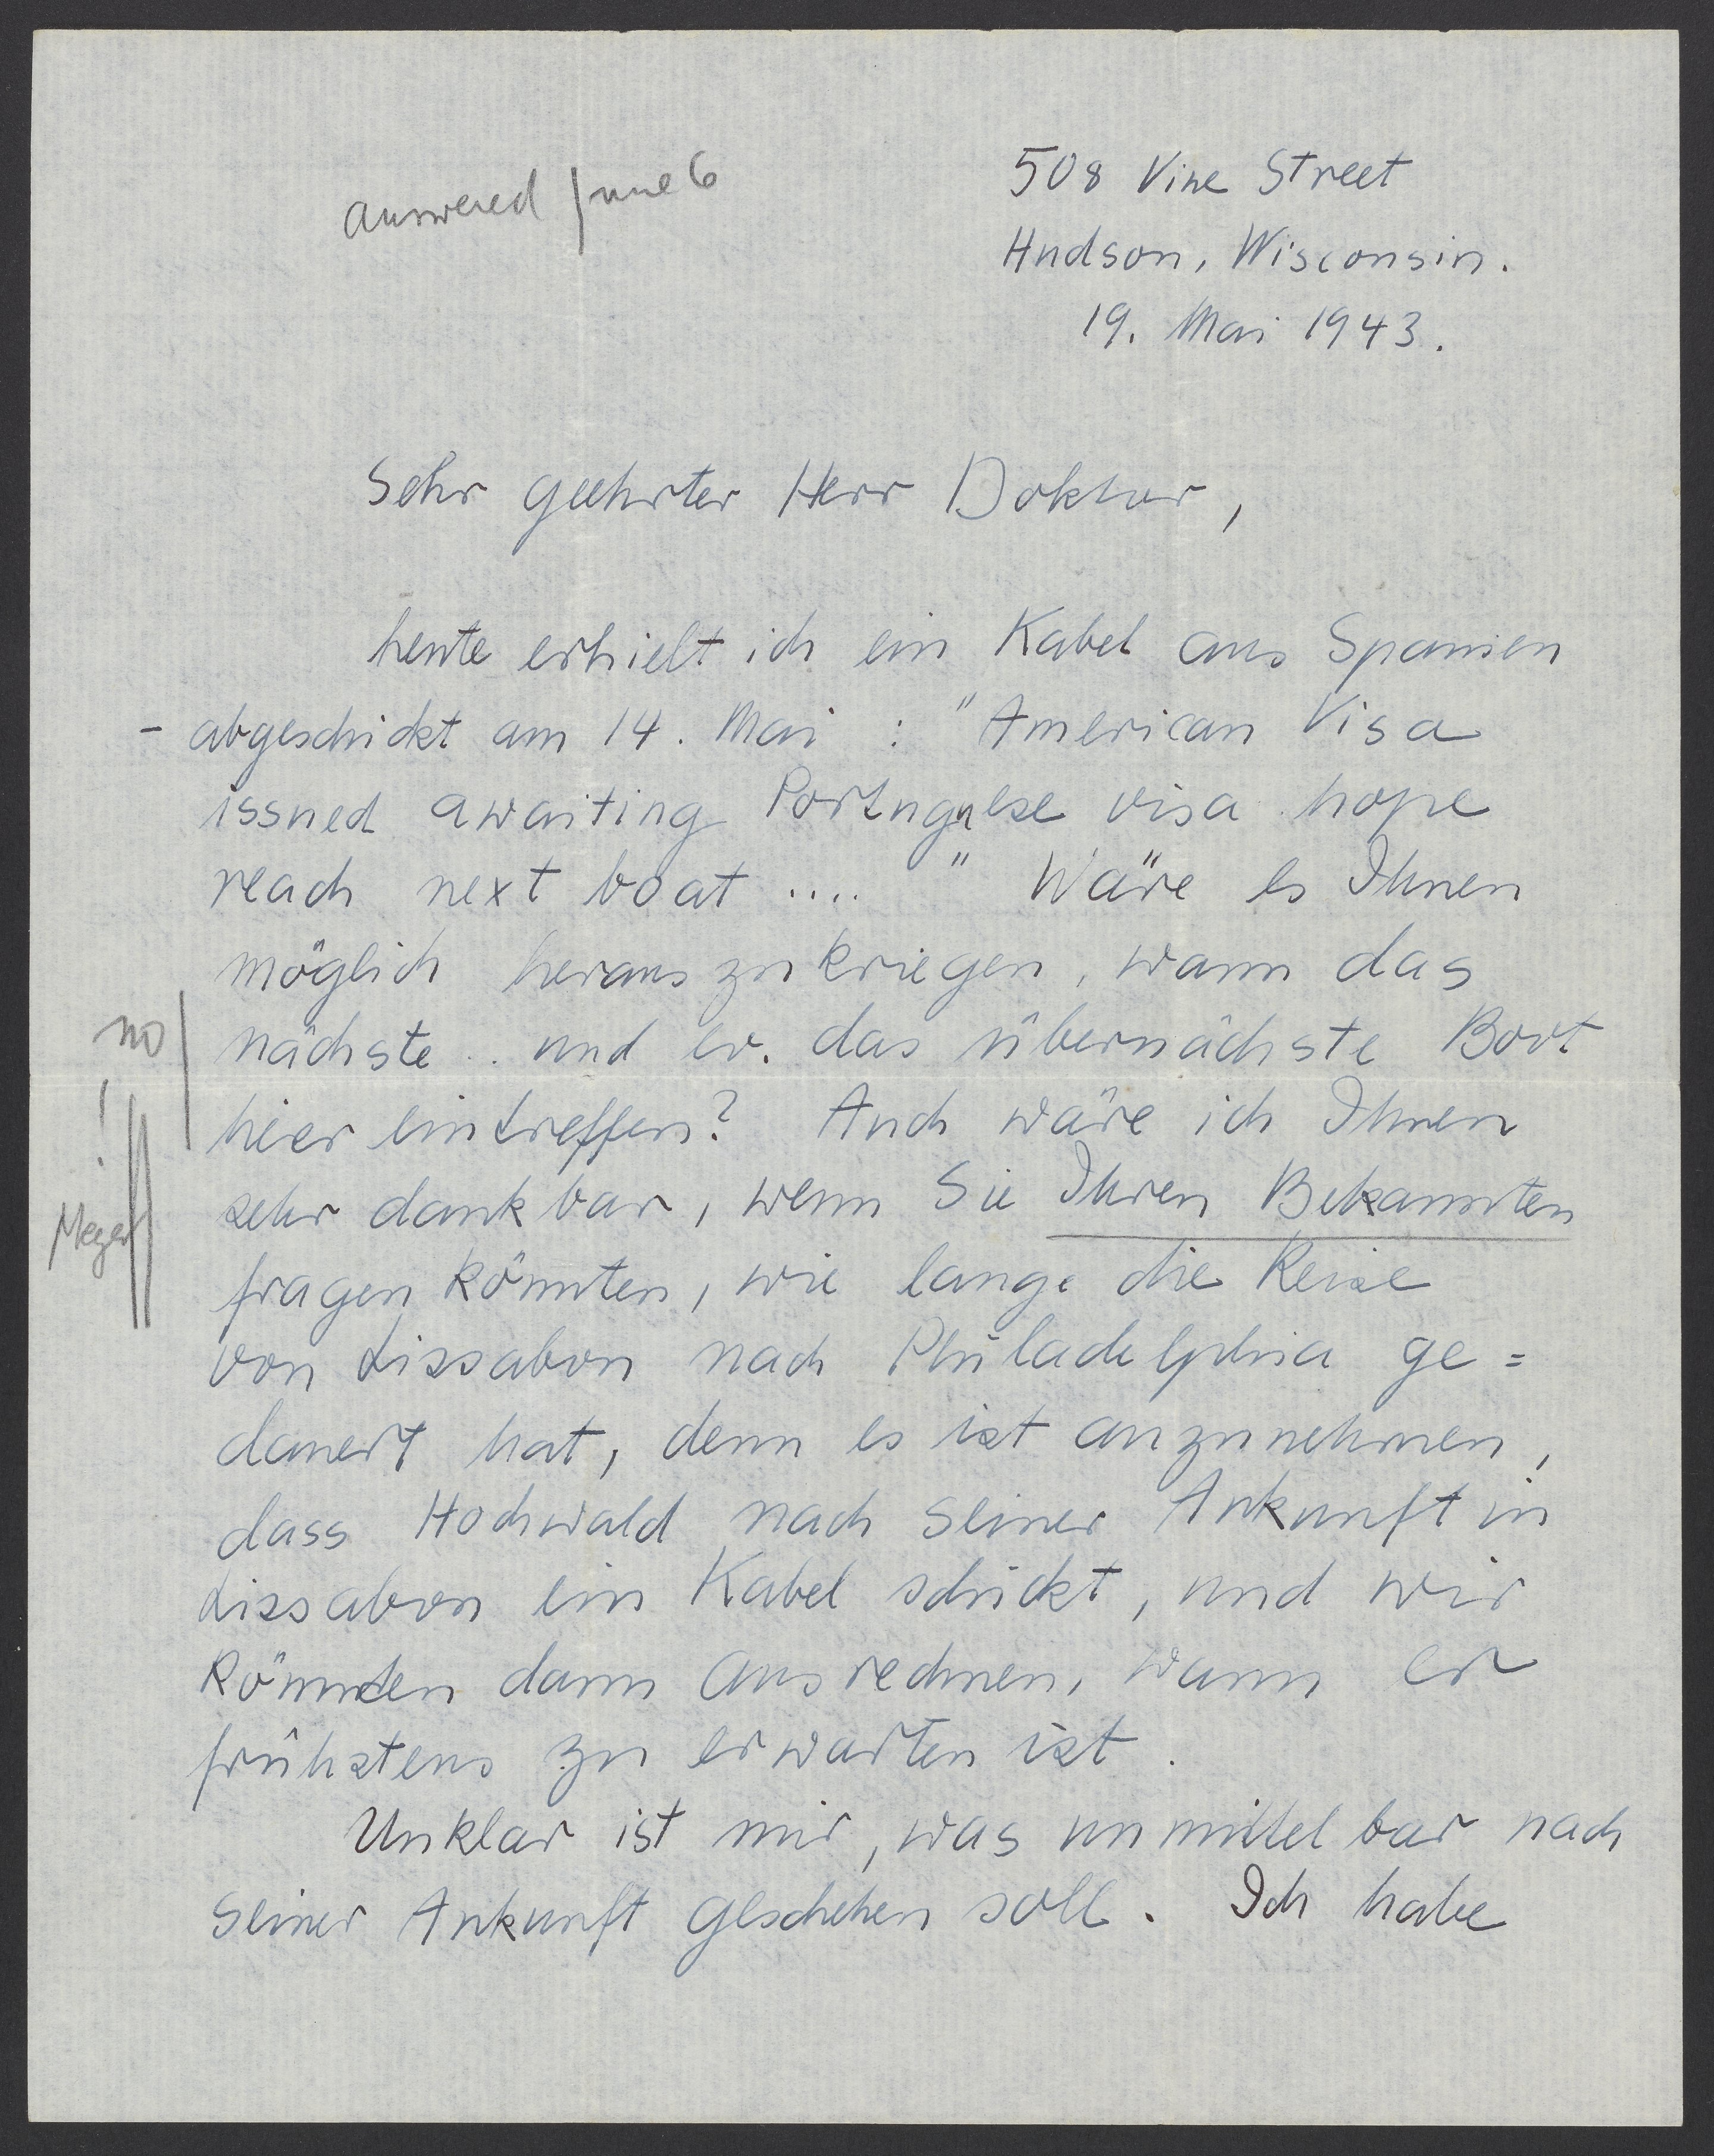 answered June 6
508 Vine Street
Hudson, Wisconsin.
19. Mai 1943.
Sehr geehrter Herr Doktor,
heute erhielt ich ein Kabel aus Spanien
- abgeschickt am 14. Mai : "American Visa
issued awaiting Portuguese visa hope
reach next boat ...." Wäre es Ihnen
möglich herauszukriegen, wann das
nächste .. und ev. das übernächste Boot
hier eintreffen? Auch wäre ich Ihnen
sehr dankbar, wenn Sie Ihren Bekannten
fragen könnten, wie lange die Reise
von Lissabon nach Philadelphia ge=
dauert hat, denn es ist anzunehmen,
dass Hochwald nach seiner Ankunft in
Lissabon ein Kabel schickt, und wir
könnten dann ausrechnen, wann er
frühstens zu erwarten ist.
Unklar ist mir, was unmittelbar nach
seiner Ankunft geschehen soll. Ich habe
no
!
Meyer